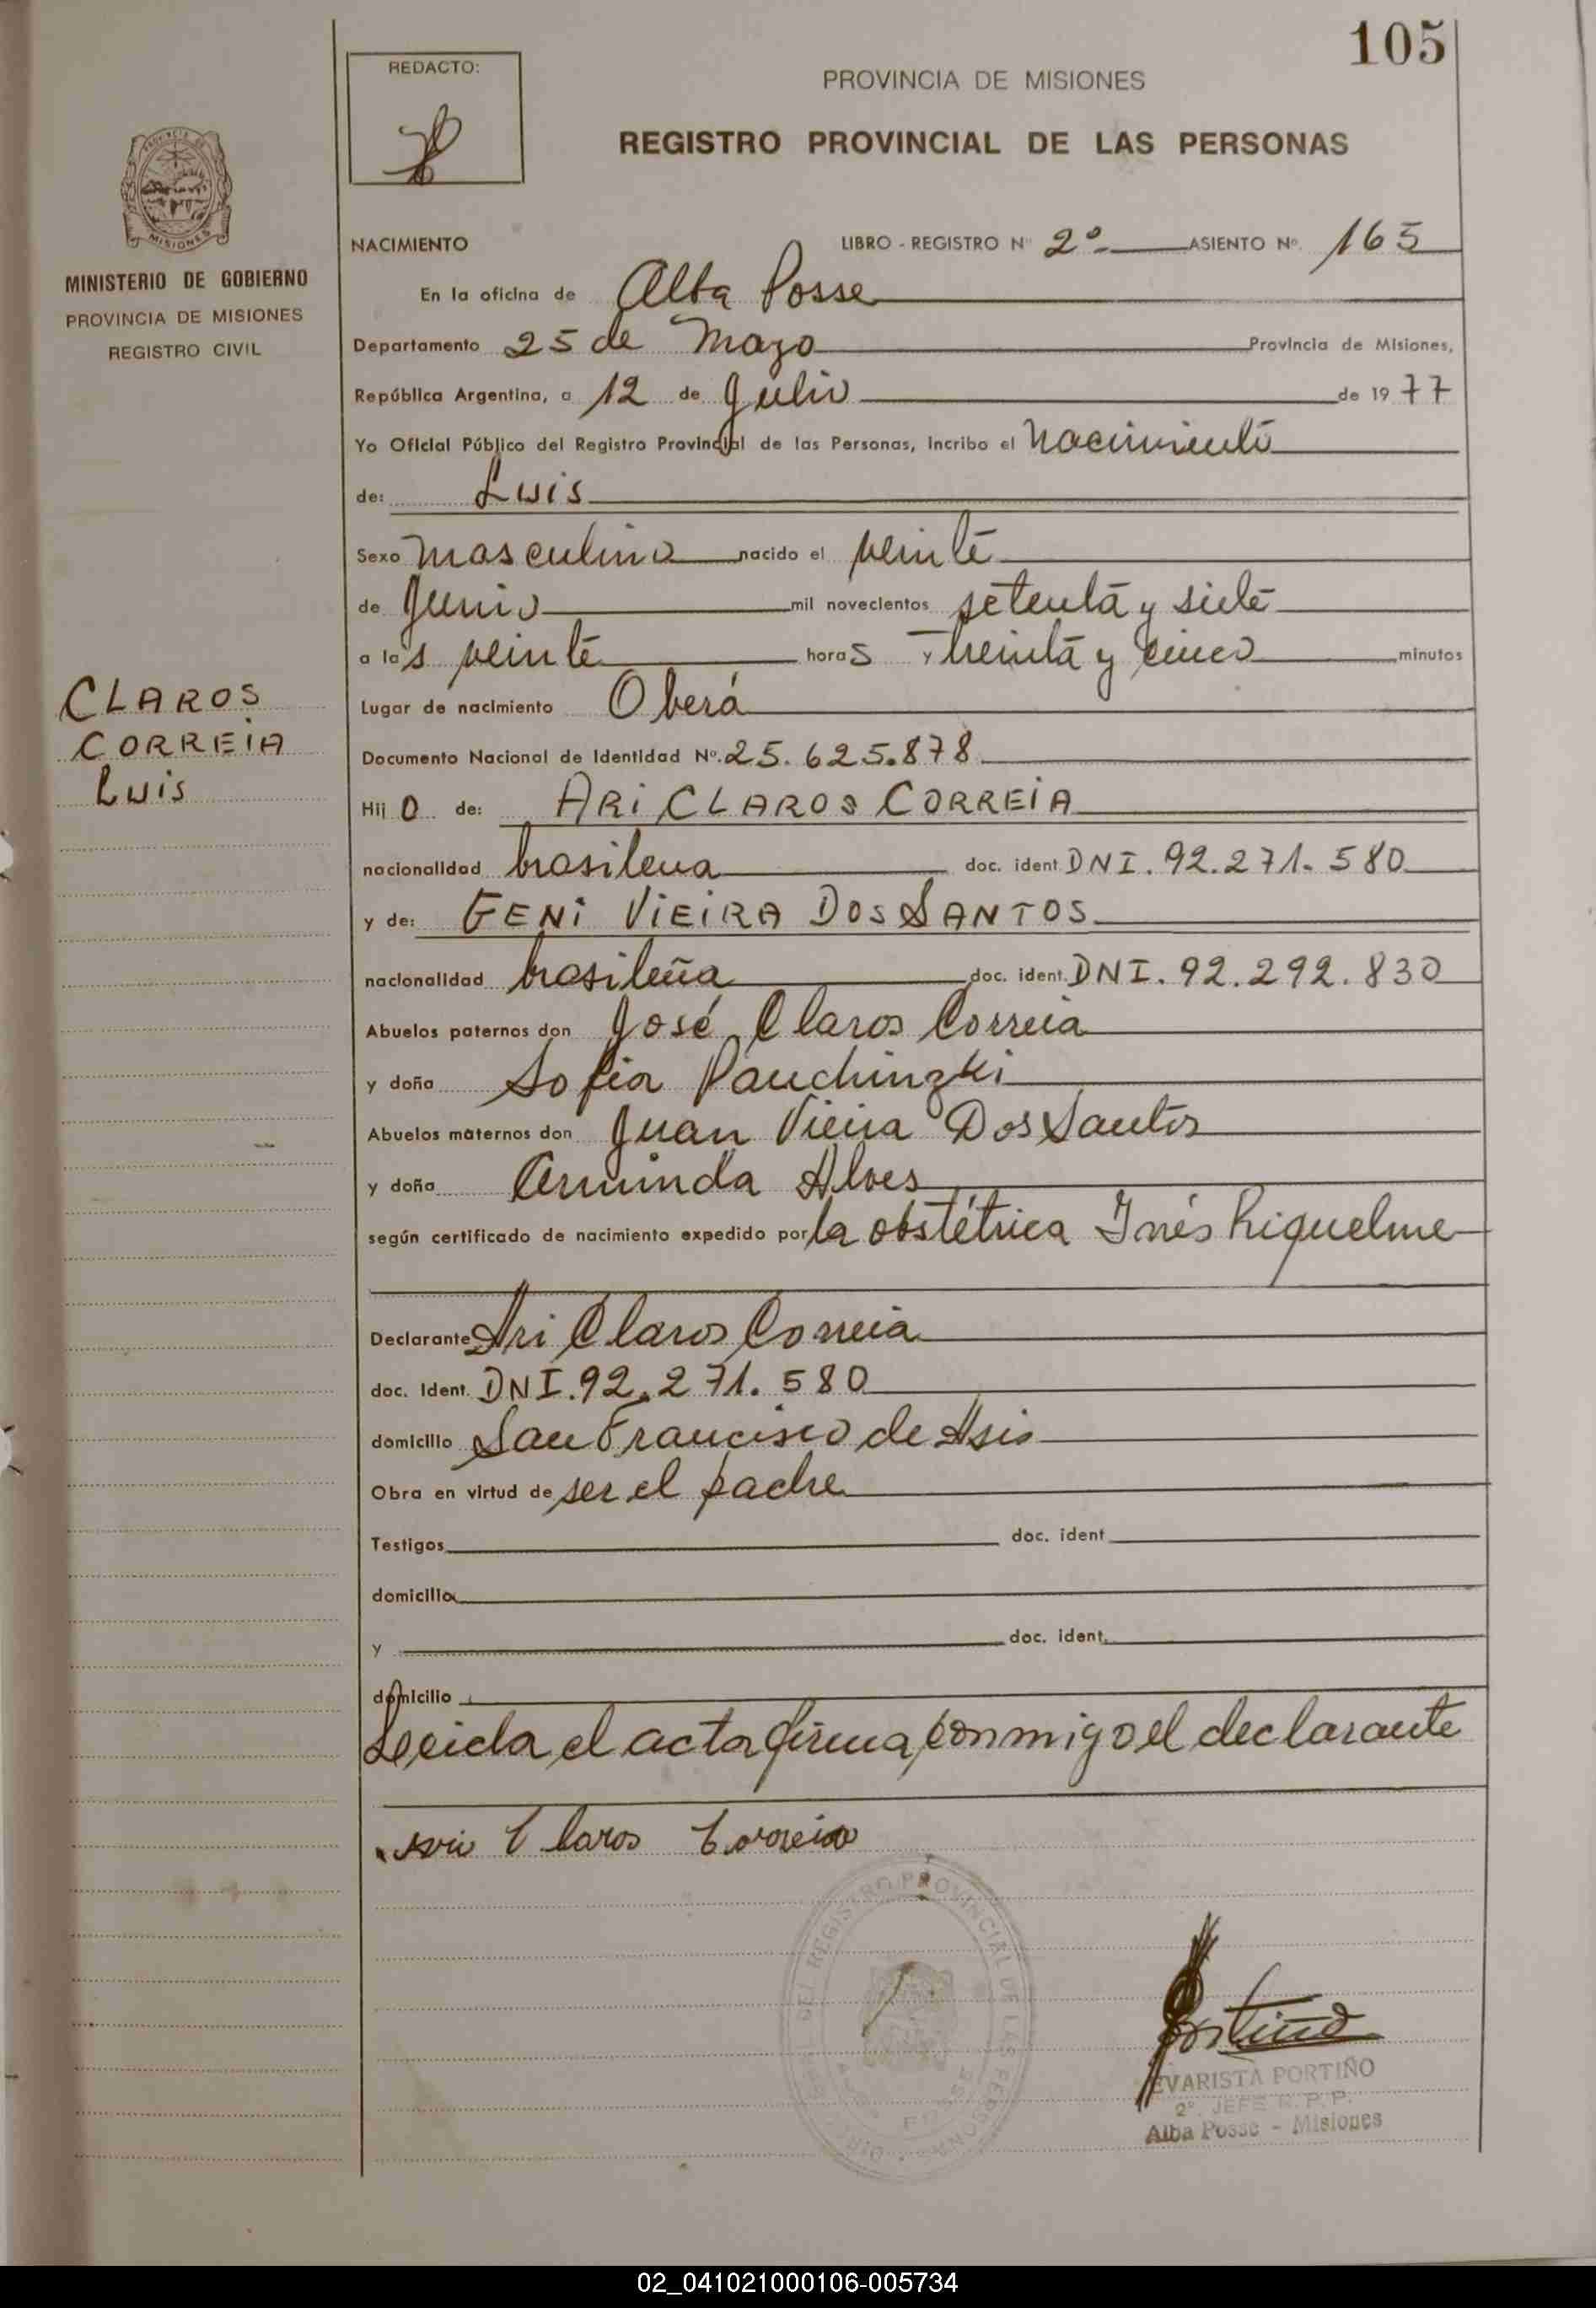 105
REDACTO:
PROVINCIA DE MISIONES
REGISTRO PROVINCIAL DE LAS PERSONAS
MINISTERIO DE GOBIERNO
PROVINCIA DE MISIONES
REGISTRO CIVIL
NACIMIENTO LIBRO - REGISTRO Nº 2º ASIENTO Nº 165
En la oficina de Alba Posse
Departamento 25 de Mayo Provincia de Misiones,
República Argentina, a 12 de Julio de 1977
Yo Oficial Público del Registro Provincial de las Personas, incribo el Nacimiento
de: Luis
Sexo Masculino nacido el veinte
de Junio mil novecientos setenta y siete
a las veinte horas y treinta y cinco minutos
CLAROS
CORREIA
Luis
Lugar de nacimiento Oberá
Documento Nacional de Identidad Nº. 25.625.878
Hijo de: ARI CLAROS CORREIA
nacionalidad brasilena doc. ident DNI. 92.271.580
y de: GENI VIEIRA DOS SANTOS
nacionalidad brasileña doc. ident. DNI. 92.292.830
Abuelos paternos don José Claros Correia
y doña Sofia Pauchinzki
Abuelos maternos don Juan Vieira Dos Santos
y doña Arminda Alves
según certificado de nacimiento expedido por la obstétrica Inés Riquelme
Declarante Ari Claros Correia
doc. Ident. DNI. 92.271.580
domicilio San Francisco de Asis
Obra en virtud de ser el padre
Testigos doc. ident
domicilio
y doc. ident.
domicilio
Leeida el acta firma conmigo el declarante
Ari Claros Correia
DEL REGISTRO PROVINCIAL DE LAS PERSONAS
POSSE
Portiño
EVARISTA PORTIÑO
2º JEFE R. P. P.
Alba Posse - Misiones
02_041021000106-005734